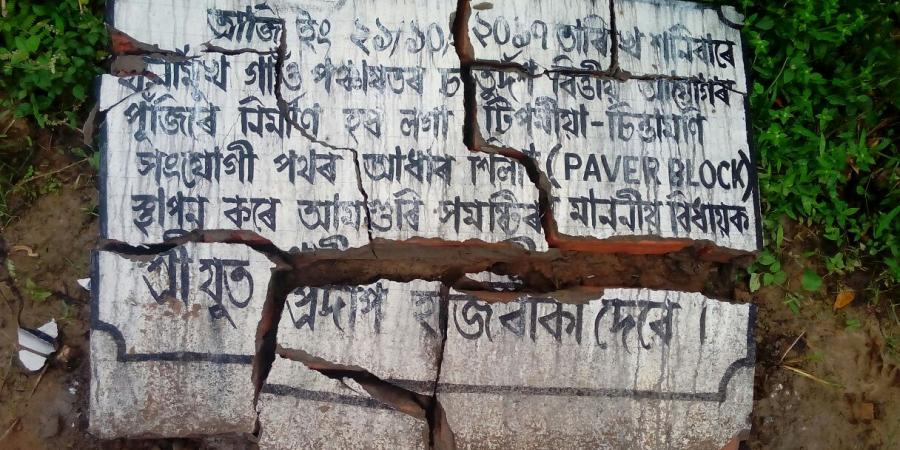 আজি ইং ২১/১০/২০১৭ তাৰিখে শনিবাৰে
গাওঁ পঞ্চায়তৰ চতুৰ্দশ বিত্তীয় আয়োগৰ
পুঁজিৰে নিৰ্মাণ হব লগা টিপমীয়া-চিন্তামণি
সংযোগী পথৰ আধাৰ শিলা (PAVER BLOCK)
স্থাপন কৰে আমগুৰি সমষ্টিৰ মাননীয় বিধায়ক
শ্ৰীযুত প্ৰদীপ হাজৰিকা দেৱে ।